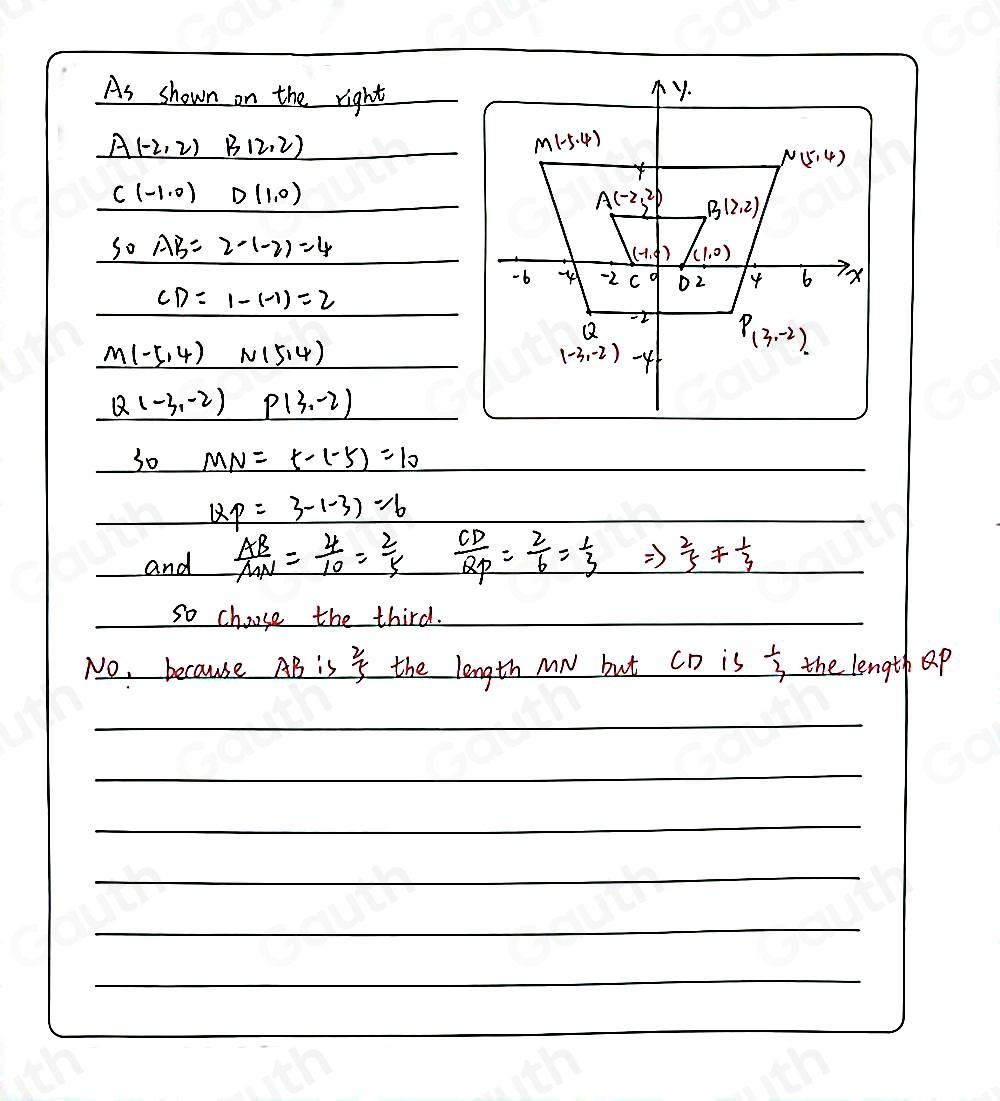 As shown on the right
A(-2,2) B(2,2)
C(-1,0) D(1,0)
so AB = 2-(-2)=4
CD = 1-(-1)=2
M(-5,4) N(5,4)
Q(-3,-2) P(3,-2)
so MN = 5-(-5)=10
QP = 3-(-3)=6
and AB/MN = 4/10 = 2/5 CD/QP = 2/6 = 1/3 ⇒ 2/5 ≠ 1/3
so choose the third.
No, because AB is 2/5 the length MN but CD is 1/3 the length QP
y.
M(-5,4)
N(5,4)
4
A(-2,2)
2
B(2,2)
(-1,0) (1,0)
-6 -4 -2 C 0 D 2 4 6 x
-2
Q
P(3,-2).
(-3,-2) -4
Gauth